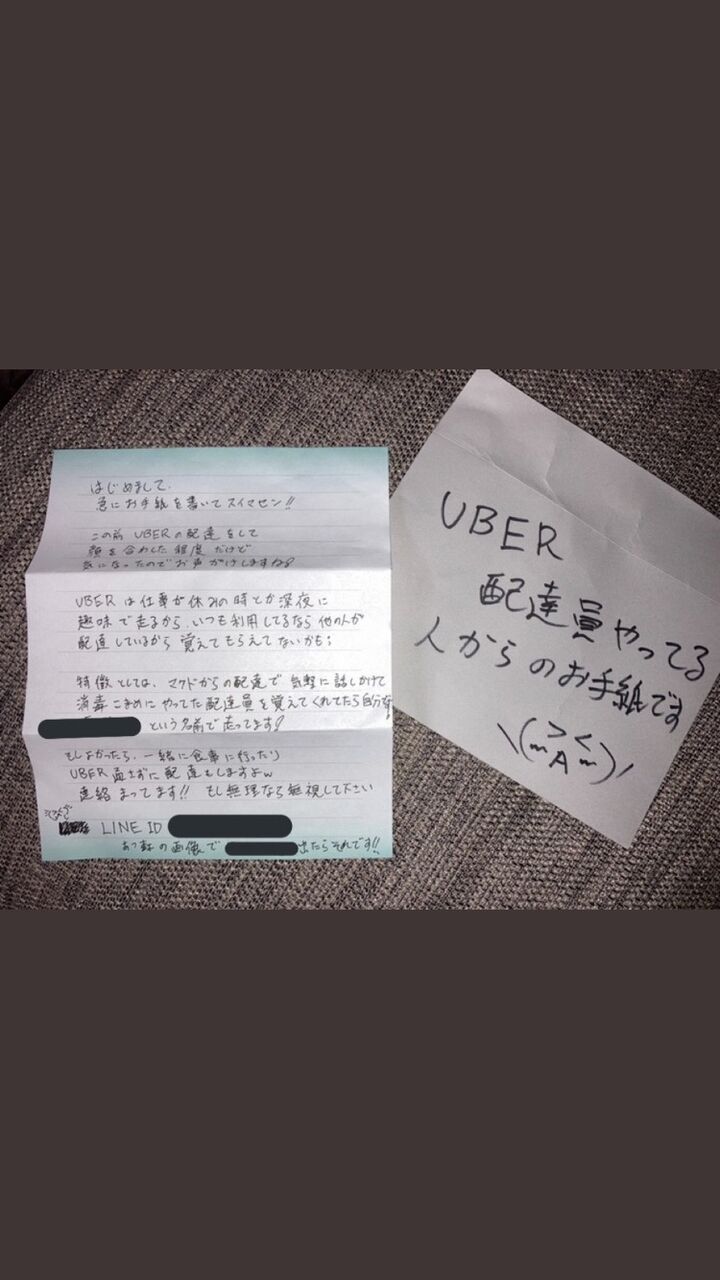 はじめまして、
急にお手紙を書いてスイマセン!!
この前 UBERの配達をして
顔を合わした程度だけど
気になったのでお声がけしますね?
UBERは仕事が休みの時とか深夜に
趣味で走るから、いつも利用してるなら他の人が
配達しているから覚えてもらえてないかも;
特徴としては、マクドからの配達で気軽に話しかけて
消毒こまめにやった配達員を覚えてくれてたら自分な
という名前で走ってます!
もしよかったら、一緒に食事に行ったり
UBER 配達もしますよw
連絡まってます!! もし無理なら無視して下さい
LINE ID
の画像で
出たらそれです!!
UBER
配達員やってる
人からのお手紙です
\(><)/
m A m